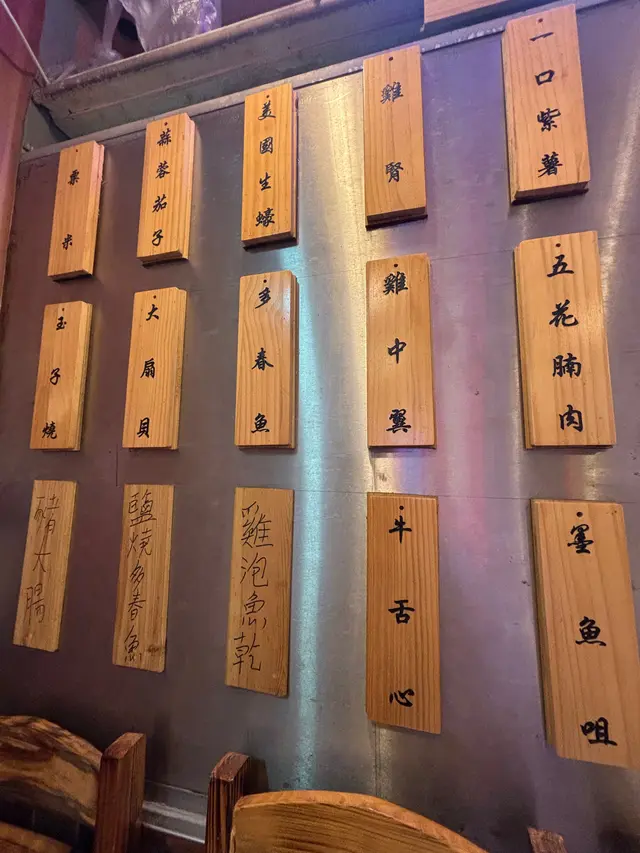 粟米
蒜蓉茄子
美國生蠔
雞腎
一口紫薯
玉子燒
大扇貝
多春魚
雞中翼
五花腩肉
豬大腸
鹽燒多春魚
雞泡魚乾
牛舌心
墨魚咀